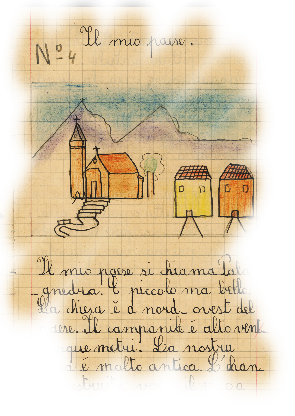 Nº 4
Il mio paese.
Il mio paese si chiama Pal
gnedra. È piccolo ma bello
La chiesa è a nord-ovest del
Il campanile è alto vent
que metri. La nostra
è molto antica. L'han